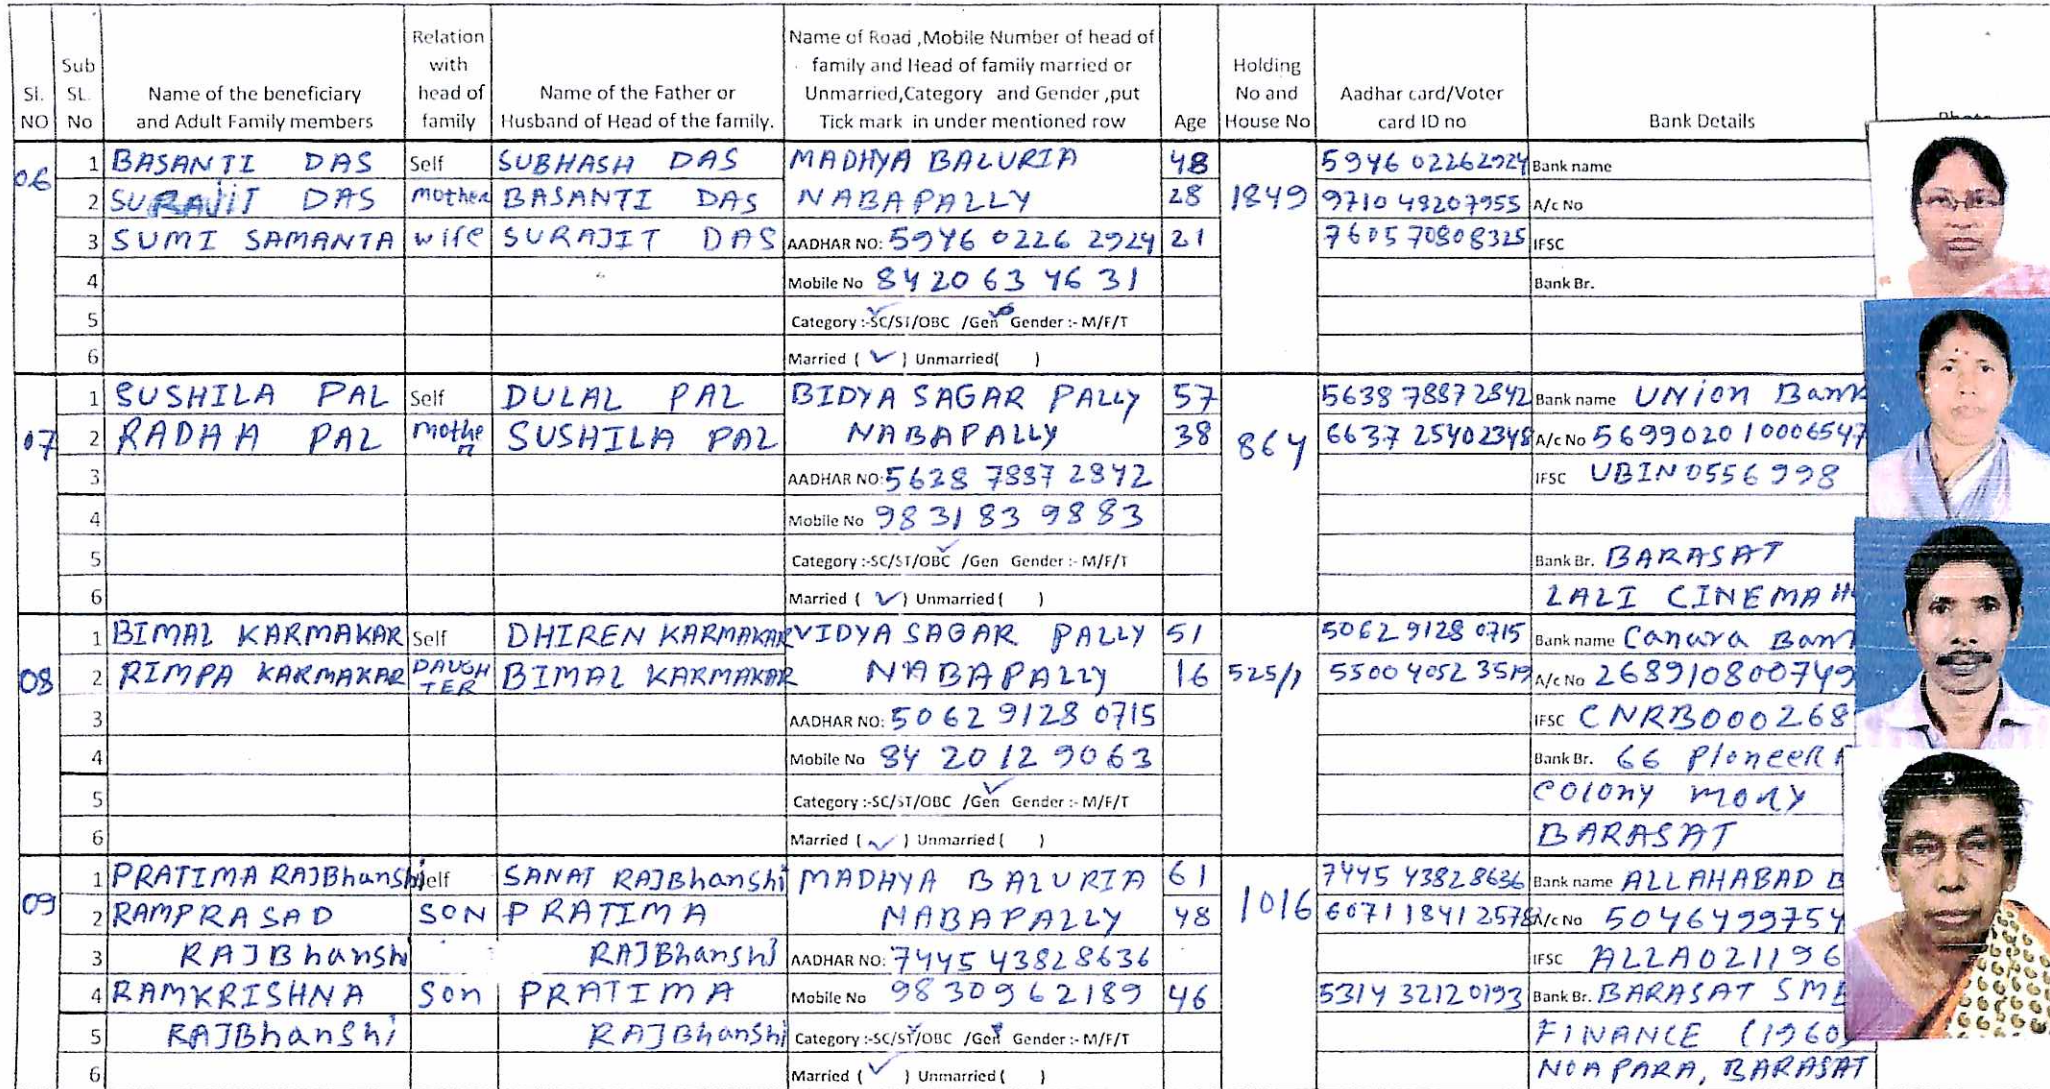 Sl. NO | Sub SL. No | Name of the beneficiary and Adult Family members | Relation with head of family | Name of the Father or Husband of Head of the family. | Name of Road ,Mobile Number of head of family and Head of family married or Unmarried,Category and Gender ,put Tick mark in under mentioned row | Age | Holding No and House No | Aadhar card/Voter card ID no | Bank Details
06 1 BASANTI DAS Self SUBHASH DAS MADHYA BALURIA 48 1849 5946 02262924 Bank name
2 SURAJIT DAS mother BASANTI DAS NABAPALLY 28 9710 49207955 A/c No
3 SUMI SAMANTA wife SURAJIT DAS AADHAR NO: 5946 0226 2924 21 7605 70808325 IFSC
4 Mobile No 84 20 63 46 31 Bank Br.
5 Category :-SC/ST/OBC /Gen Gender :- M/F/T
6 Married ( ✓ ) Unmarried( )
07 1 SUSHILA PAL Self DULAL PAL BIDYA SAGAR PALLY 57 864 5638 7887 2842 Bank name UNion Bank
2 RADHA PAL mother SUSHILA PAL NABAPALLY 38 6637 25402348 A/c No 569902010006547
3 AADHAR NO: 5628 7887 2842 IFSC UBIN0556998
4 Mobile No 98 31 83 9883
5 Category :-SC/ST/OBC /Gen Gender :- M/F/T Bank Br. BARASAT
6 Married ( ✓ ) Unmarried ( ) LALI CINEMA H
08 1 BIMAL KARMAKAR Self DHIREN KARMAKAR VIDYA SAGAR PALLY 51 525/1 5062 9128 0715 Bank name Canara Bank
2 RIMPA KARMAKAR DAUGHTER BIMAL KARMAKAR NABAPALLY 16 5500 4052 3519 A/c No 268910800749
3 AADHAR NO: 5062 9128 0715 IFSC CNRB000268
4 Mobile No 84 20 12 9063 Bank Br. 66 PIoneeR
5 Category :-SC/ST/OBC /Gen Gender :- M/F/T COlONy MORY
6 Married ( ✓ ) Unmarried ( ) BARASAT
09 1 PRATIMA RAJBhanshi Self SANAT RAJBhanshi MADHYA BALURIA 61 1016 7445 43828636 Bank name ALLAHABAD B
2 RAMPRASAD SON PRATIMA NABAPALLY 48 6071 1841 2578 A/c No 5046499754
3 RAJBhanshi RAJBhanshi AADHAR NO: 7445 43828636 IFSC ALLA021196
4 RAMKRISHNA Son PRATIMA Mobile No 9830962189 46 5314 32120193 Bank Br. BARASAT SME
5 RAJBhanshi RAJBhanshi Category :-SC/ST/OBC /Gen Gender :- M/F/T FINANCE (1960)
6 Married ( ✓ ) Unmarried ( ) NOAPARA, BARASAT